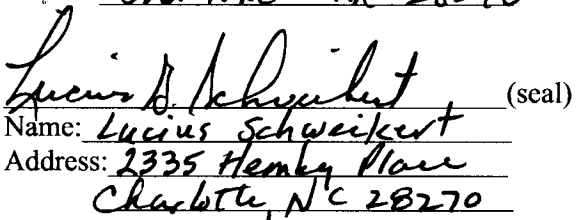 28270
Lucius G. Schweikert (seal)
Name: Lucius Schweikert
Address: 2335 Hemby Place
Charlotte, NC 28270